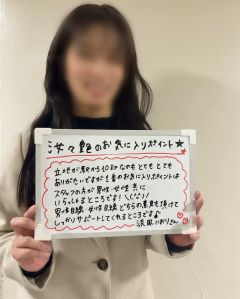 汝々艶のお気に入りポイント★
立地が駅から10秒なのもとてもとても
ありがたいですが1番のお気に入りポイントは
スタッフの方が男性・女性共に
いらっしゃるところです！＼(^^)／
男性目線・女性目線どちらの意見を頂けて
しっかりサポートしてくれるところです♪
涼風いおりさん